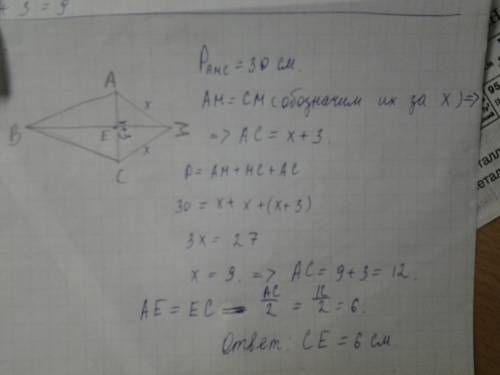 + 3 = 9
P AMC = 30 см.
AM = CM (обозначим их за x) =>
=> AC = x + 3.
P = AM + MC + AC
30 = x + x + (x + 3)
3x = 27
x = 9. => AC = 9 + 3 = 12.
AE = EC = AC/2 = 12/2 = 6.
Ответ: CE = 6 см
A
x
B
E
M
x
C
95